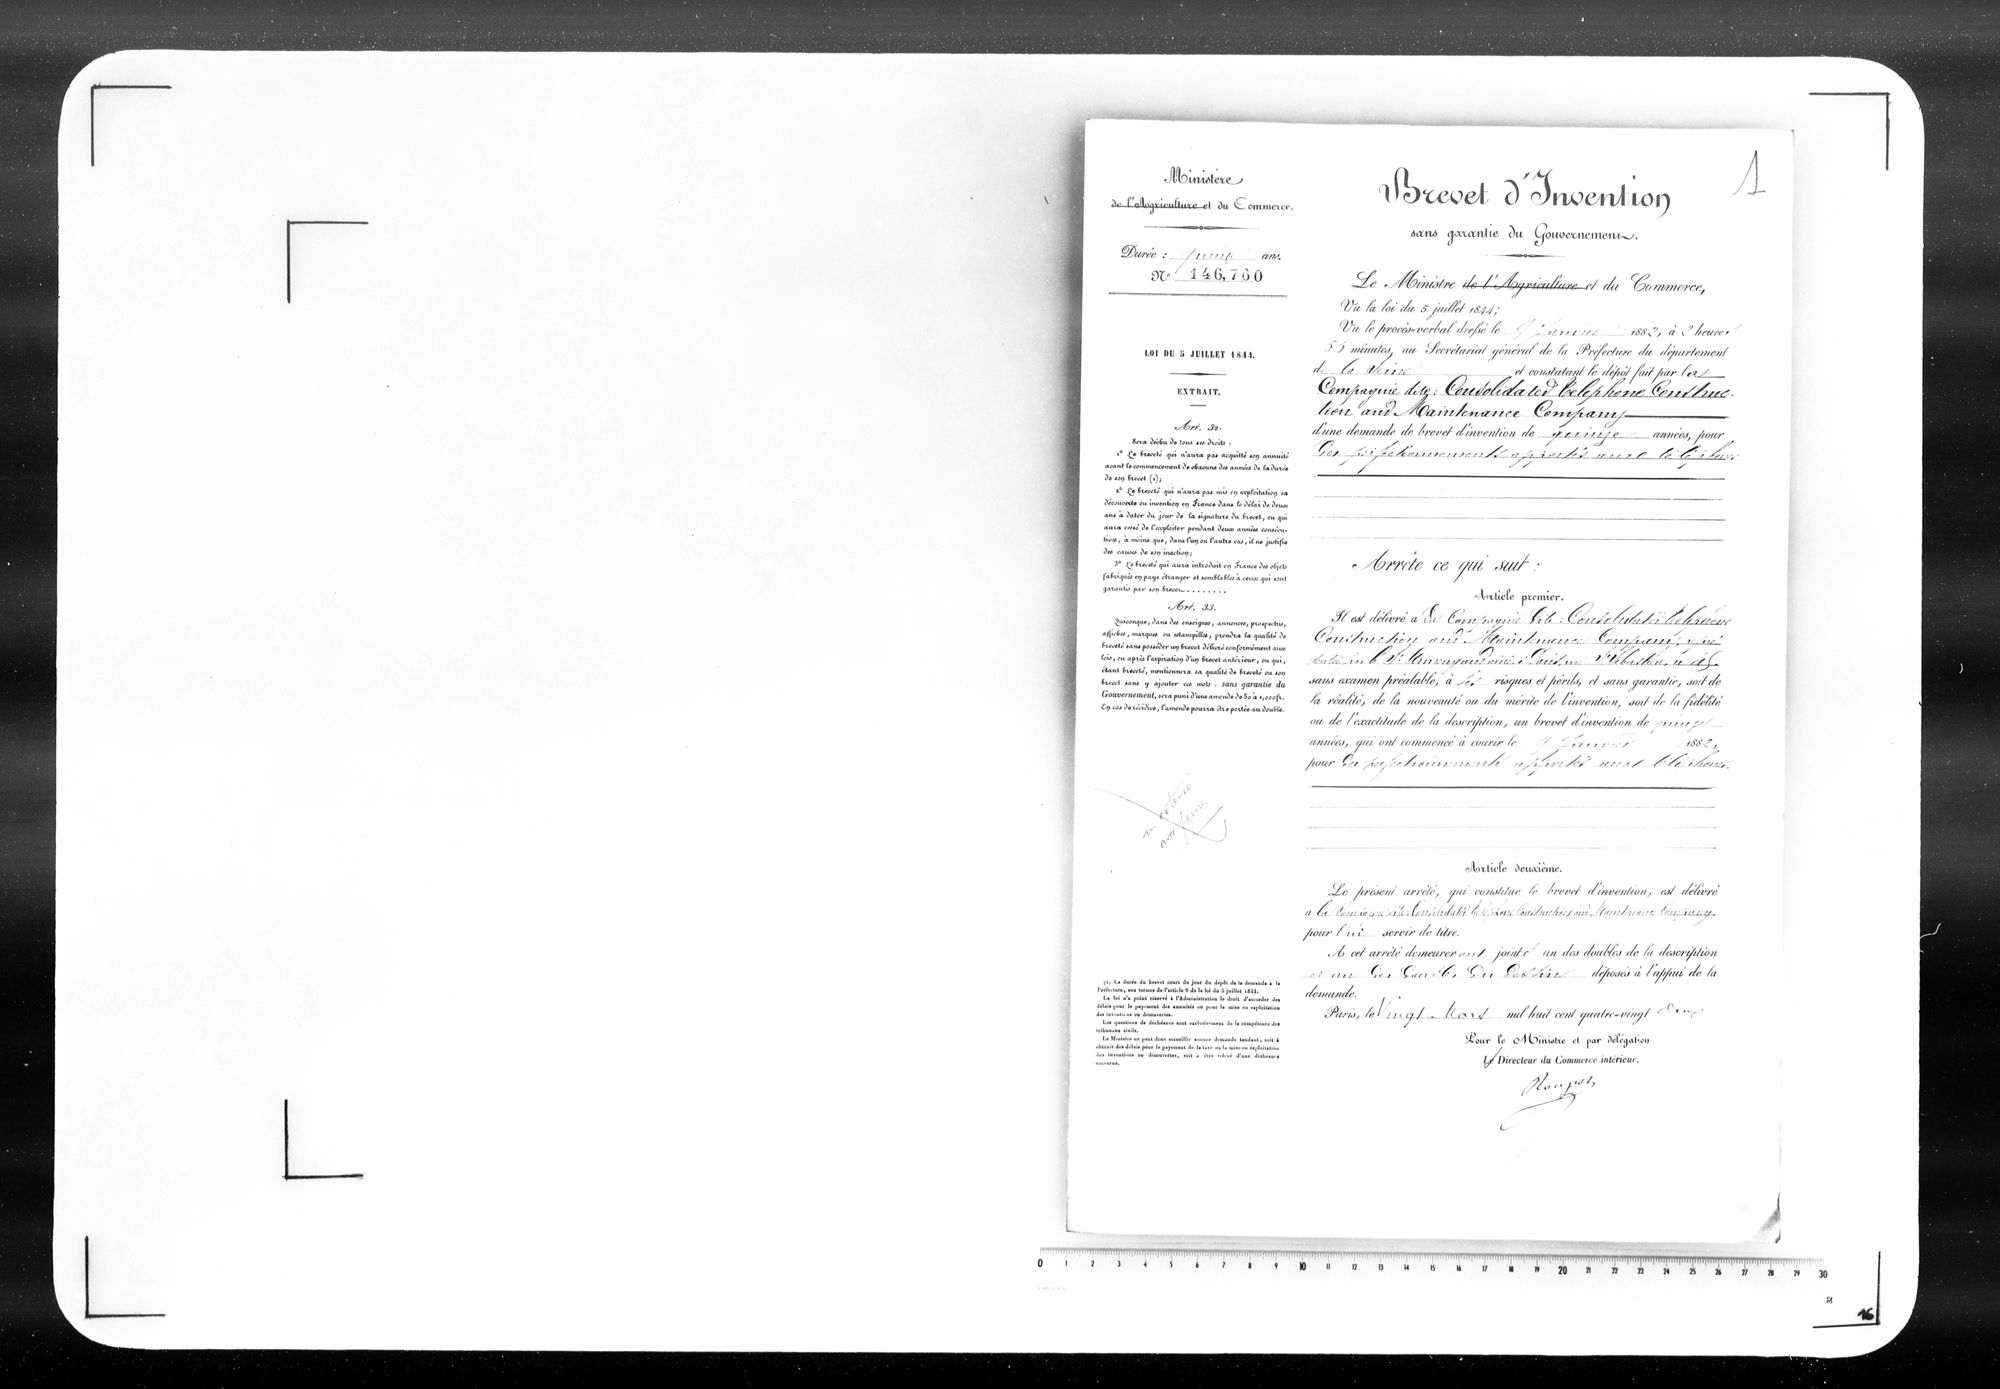 1
Ministère
de l'Agriculture et du Commerce.
Durée : quinze ans.
N° 146,760
LOI DU 5 JUILLET 1844.
EXTRAIT.
Art. 32.
Sera déchu de tous ses droits :
1° Le breveté qui n'aura pas acquitté son annuité
avant le commencement de chacune des années de la durée
de son brevet (1);
2° Le breveté qui n'aura pas mis en exploitation sa
découverte ou invention en France dans le délai de deux
ans à dater du jour de la signature du brevet, ou qui
aura cessé de l'exploiter pendant deux années consécu-
tives, à moins que, dans l'un ou l'autre cas, il ne justifie
des causes de son inaction;
3° Le breveté qui aura introduit en France des objets
fabriqués en pays étranger et semblables à ceux qui sont
garantis par son brevet........
Art. 33.
Quiconque, dans des enseignes, annonces, prospectus,
affiches, marques ou estampilles, prendra la qualité de
breveté sans posséder un brevet délivré conformément aux
lois, ou après l'expiration d'un brevet antérieur, ou qui,
étant breveté, mentionnera sa qualité de breveté ou son
brevet sans y ajouter ces mots : sans garantie du
Gouvernement, sera puni d'une amende de 50 à 1,000 fr.
En cas de récidive, l'amende pourra être portée au double.
(1) La durée du brevet court du jour du dépôt de la demande à la
Préfecture, aux termes de l'article 8 de la loi du 5 juillet 1844.
La loi n'a point réservé à l'Administration le droit d'accorder des
délais pour le payement des annuités ou pour la mise en exploitation
des inventions ou découvertes.
Les questions de déchéance sont exclusivement de la compétence des
tribunaux civils.
Le Ministre ne peut donc accueillir aucune demande tendant, soit à
obtenir des délais pour le payement de la taxe ou la mise en exploitation
des inventions ou découvertes, soit à être relevé d'une déchéance
encourue.
Brevet d'Invention
sans garantie du Gouvernement.
Le Ministre de l'Agriculture et du Commerce,
Vu la loi du 5 juillet 1844;
Vu le procès-verbal dressé le 9 Janvier 1882, à 2 heures
55 minutes, au Secrétariat général de la Préfecture du département
de la Seine et constatant le dépôt fait par la
Compagnie dite : Consolidated Telephone Construc-
tion and Maintenance Company
d'une demande de brevet d'invention de quinze années, pour
des perfectionnements apportés aux téléphones
Arrête ce qui suit :
Article premier.
Il est délivré à la Compagnie dite : Consolidated Telephone
Construction and Maintenance Company
sans examen préalable, à ses risques et périls, et sans garantie, soit de
la réalité, de la nouveauté ou du mérite de l'invention, soit de la fidélité
ou de l'exactitude de la description, un brevet d'invention de quinze
années, qui ont commencé à courir le 9 Janvier 1882,
pour des perfectionnements apportés aux téléphones.
Article deuxième.
Le présent arrêté, qui constitue le brevet d'invention, est délivré
à la Compagnie dite Consolidated Telephone Construction and Maintenance Company
pour lui servir de titre.
A cet arrêté demeureront joints un des doubles de la description
et un des doubles du dessin déposés à l'appui de la
demande.
Paris, le Vingt Mars mil huit cent quatre-vingt deux
Pour le Ministre et par délégation
Le Directeur du Commerce intérieur.
0 1 2 3 4 5 6 7 8 9 10 11 12 13 14 15 16 17 18 19 20 21 22 23 24 25 26 27 28 29 30
16